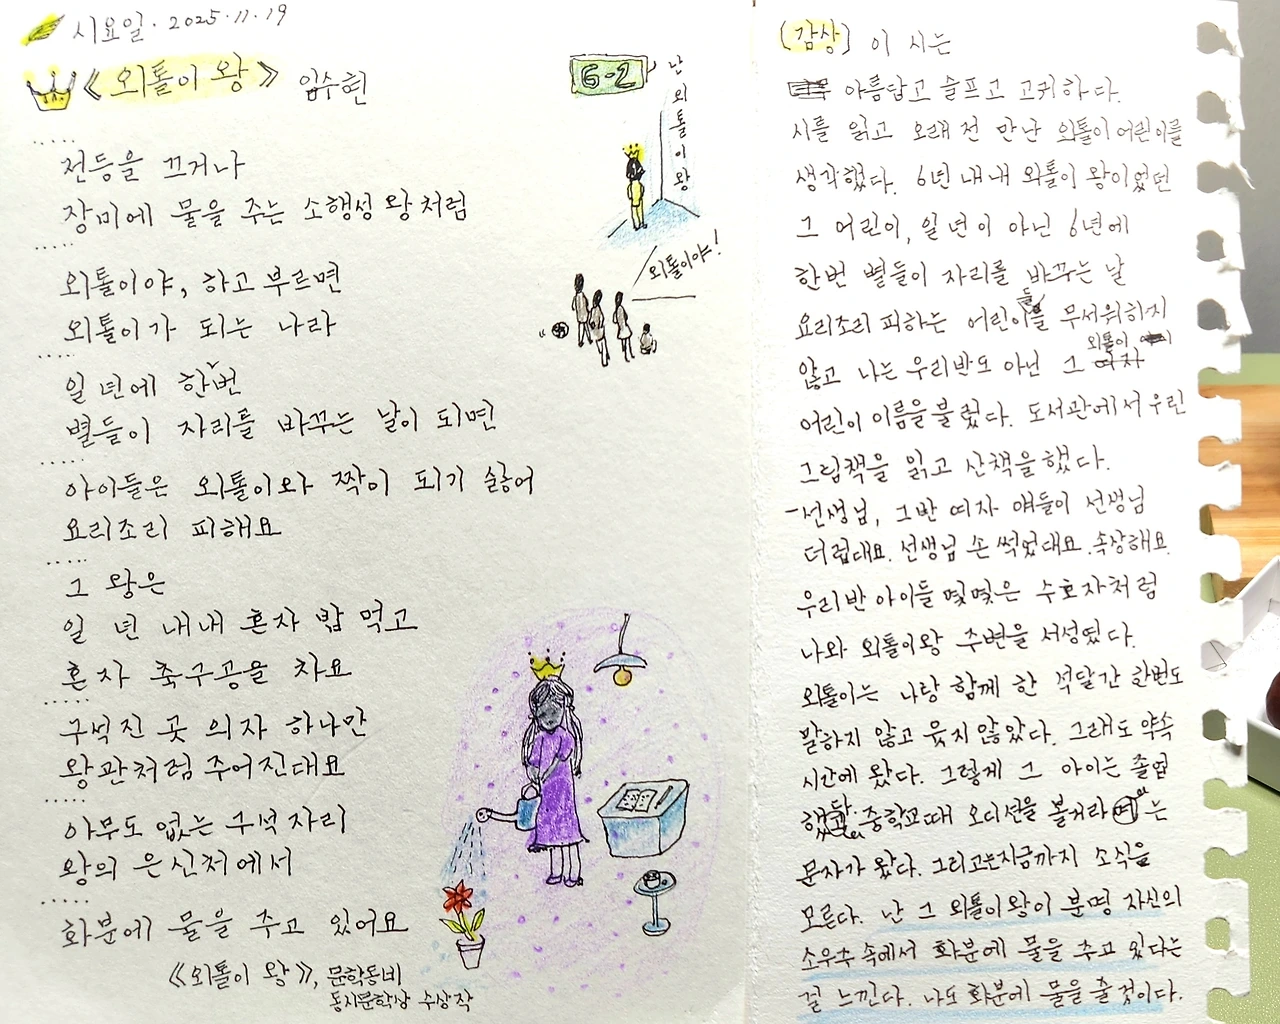 시요일. 2025.11.19
《외톨이 왕》 임수현
전등을 끄거나
장미에 물을 주는 소행성 왕처럼
외톨이야, 하고 부르면
외톨이가 되는 나라
일 년에 한번
별들이 자리를 바꾸는 날이 되면
아이들은 외톨이와 짝이 되기 싫어
요리조리 피해요
그 왕은
일 년 내내 혼자 밥 먹고
혼자 축구공을 차요
구석진 곳 의자 하나만
왕관처럼 주어진대요
아무도 없는 구석 자리
왕의 은신처에서
화분에 물을 주고 있어요
《외톨이 왕》, 문학동네
동시문학상 수상작
6-2
난 외톨이 왕
외톨이야!
(감상) 이 시는
아름답고 슬프고 고귀하다.
시를 읽고 오래 전 만난 외톨이 어린이를
생각했다. 6년 내내 외톨이 왕이었던
그 어린이, 일 년이 아닌 6년에
한번 별들이 자리를 바꾸는 날
요리조리 피하는 어린이들을 무서워하지
않고 나는 우리반도 아닌 그 외톨이
어린이 이름을 불렀다. 도서관에서 우린
그림책을 읽고 산책을 했다.
-선생님, 그반 여자 얘들이 선생님
더럽대요. 선생님 손 썩었대요. 속상해요.
우리반 아이들 몇몇은 수호자처럼
나와 외톨이왕 주변을 서성였다.
외톨이는 나랑 함께 한 석달간 한번도
말하지 않고 웃지 않았다. 그래도 약속
시간에 왔다. 그렇게 그 아이는 졸업
했고 중학교때 오디션을 볼거라는
문자가 왔다. 그리고는 지금까지 소식을
모른다. 난 그 외톨이왕이 분명 자신의
소우주 속에서 화분에 물을 주고 있다는
걸 느낀다. 나도 화분에 물을 줄것이다.